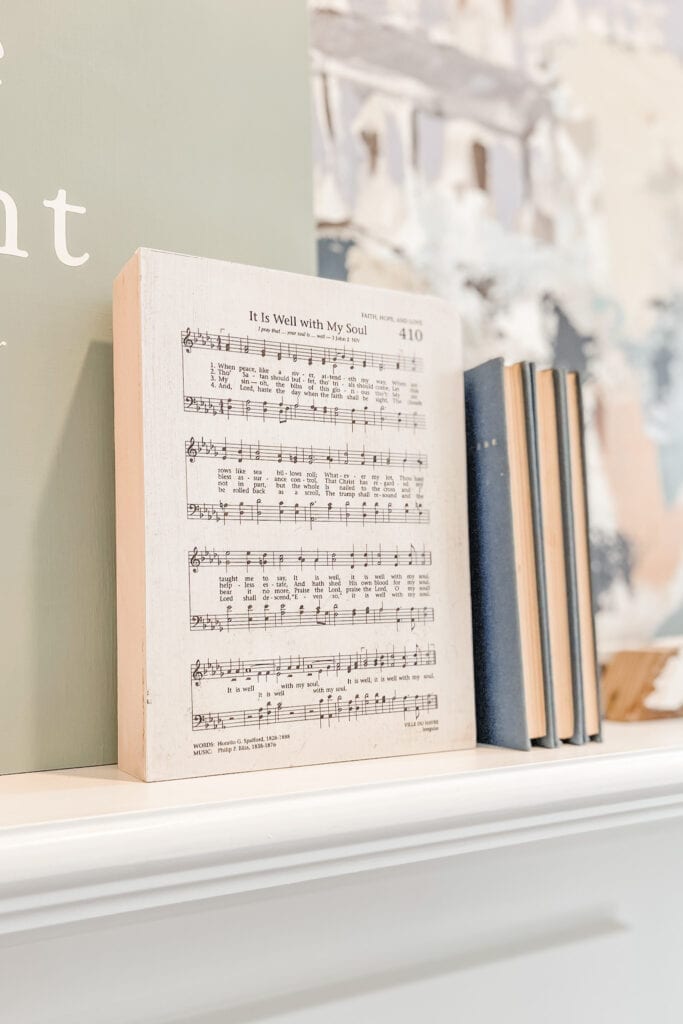 nt
It Is Well with My Soul
FAITH, HOPE, AND LOVE
I pray that ... your soul is ... well — 3 John 2 NIV
410
1. When peace, like a riv - er, at-tend - eth my way, When
2. Tho' Sa - tan should buf - fet, tho' tri - als should come, Let
3. My sin — oh, the bliss of this glo - ri - ous tho't: My
4. And, Lord, haste the day when the faith shall be sight, The clouds
rows like sea bil - lows roll; What - ev - er my lot, Thou hast
blest as - sur - ance con - trol, That Christ has re - gard - ed my
not in part, but the whole Is nailed to the cross and
be rolled back as a scroll, The trump shall re - sound and the
taught me to say, It is well, it is well with my soul.
help - less es - tate, And hath shed His own blood for my soul.
bear it no more, Praise the Lord, praise the Lord, O my soul!
Lord shall de - scend, "E - ven so," it is well with my soul.
It is well with my soul, It is well, it is well with my soul.
It is well with my soul,
WORDS: Horatio G. Spafford, 1828-1888
MUSIC: Philip P. Bliss, 1838-1876
VILLE DU HAVRE
Irregular